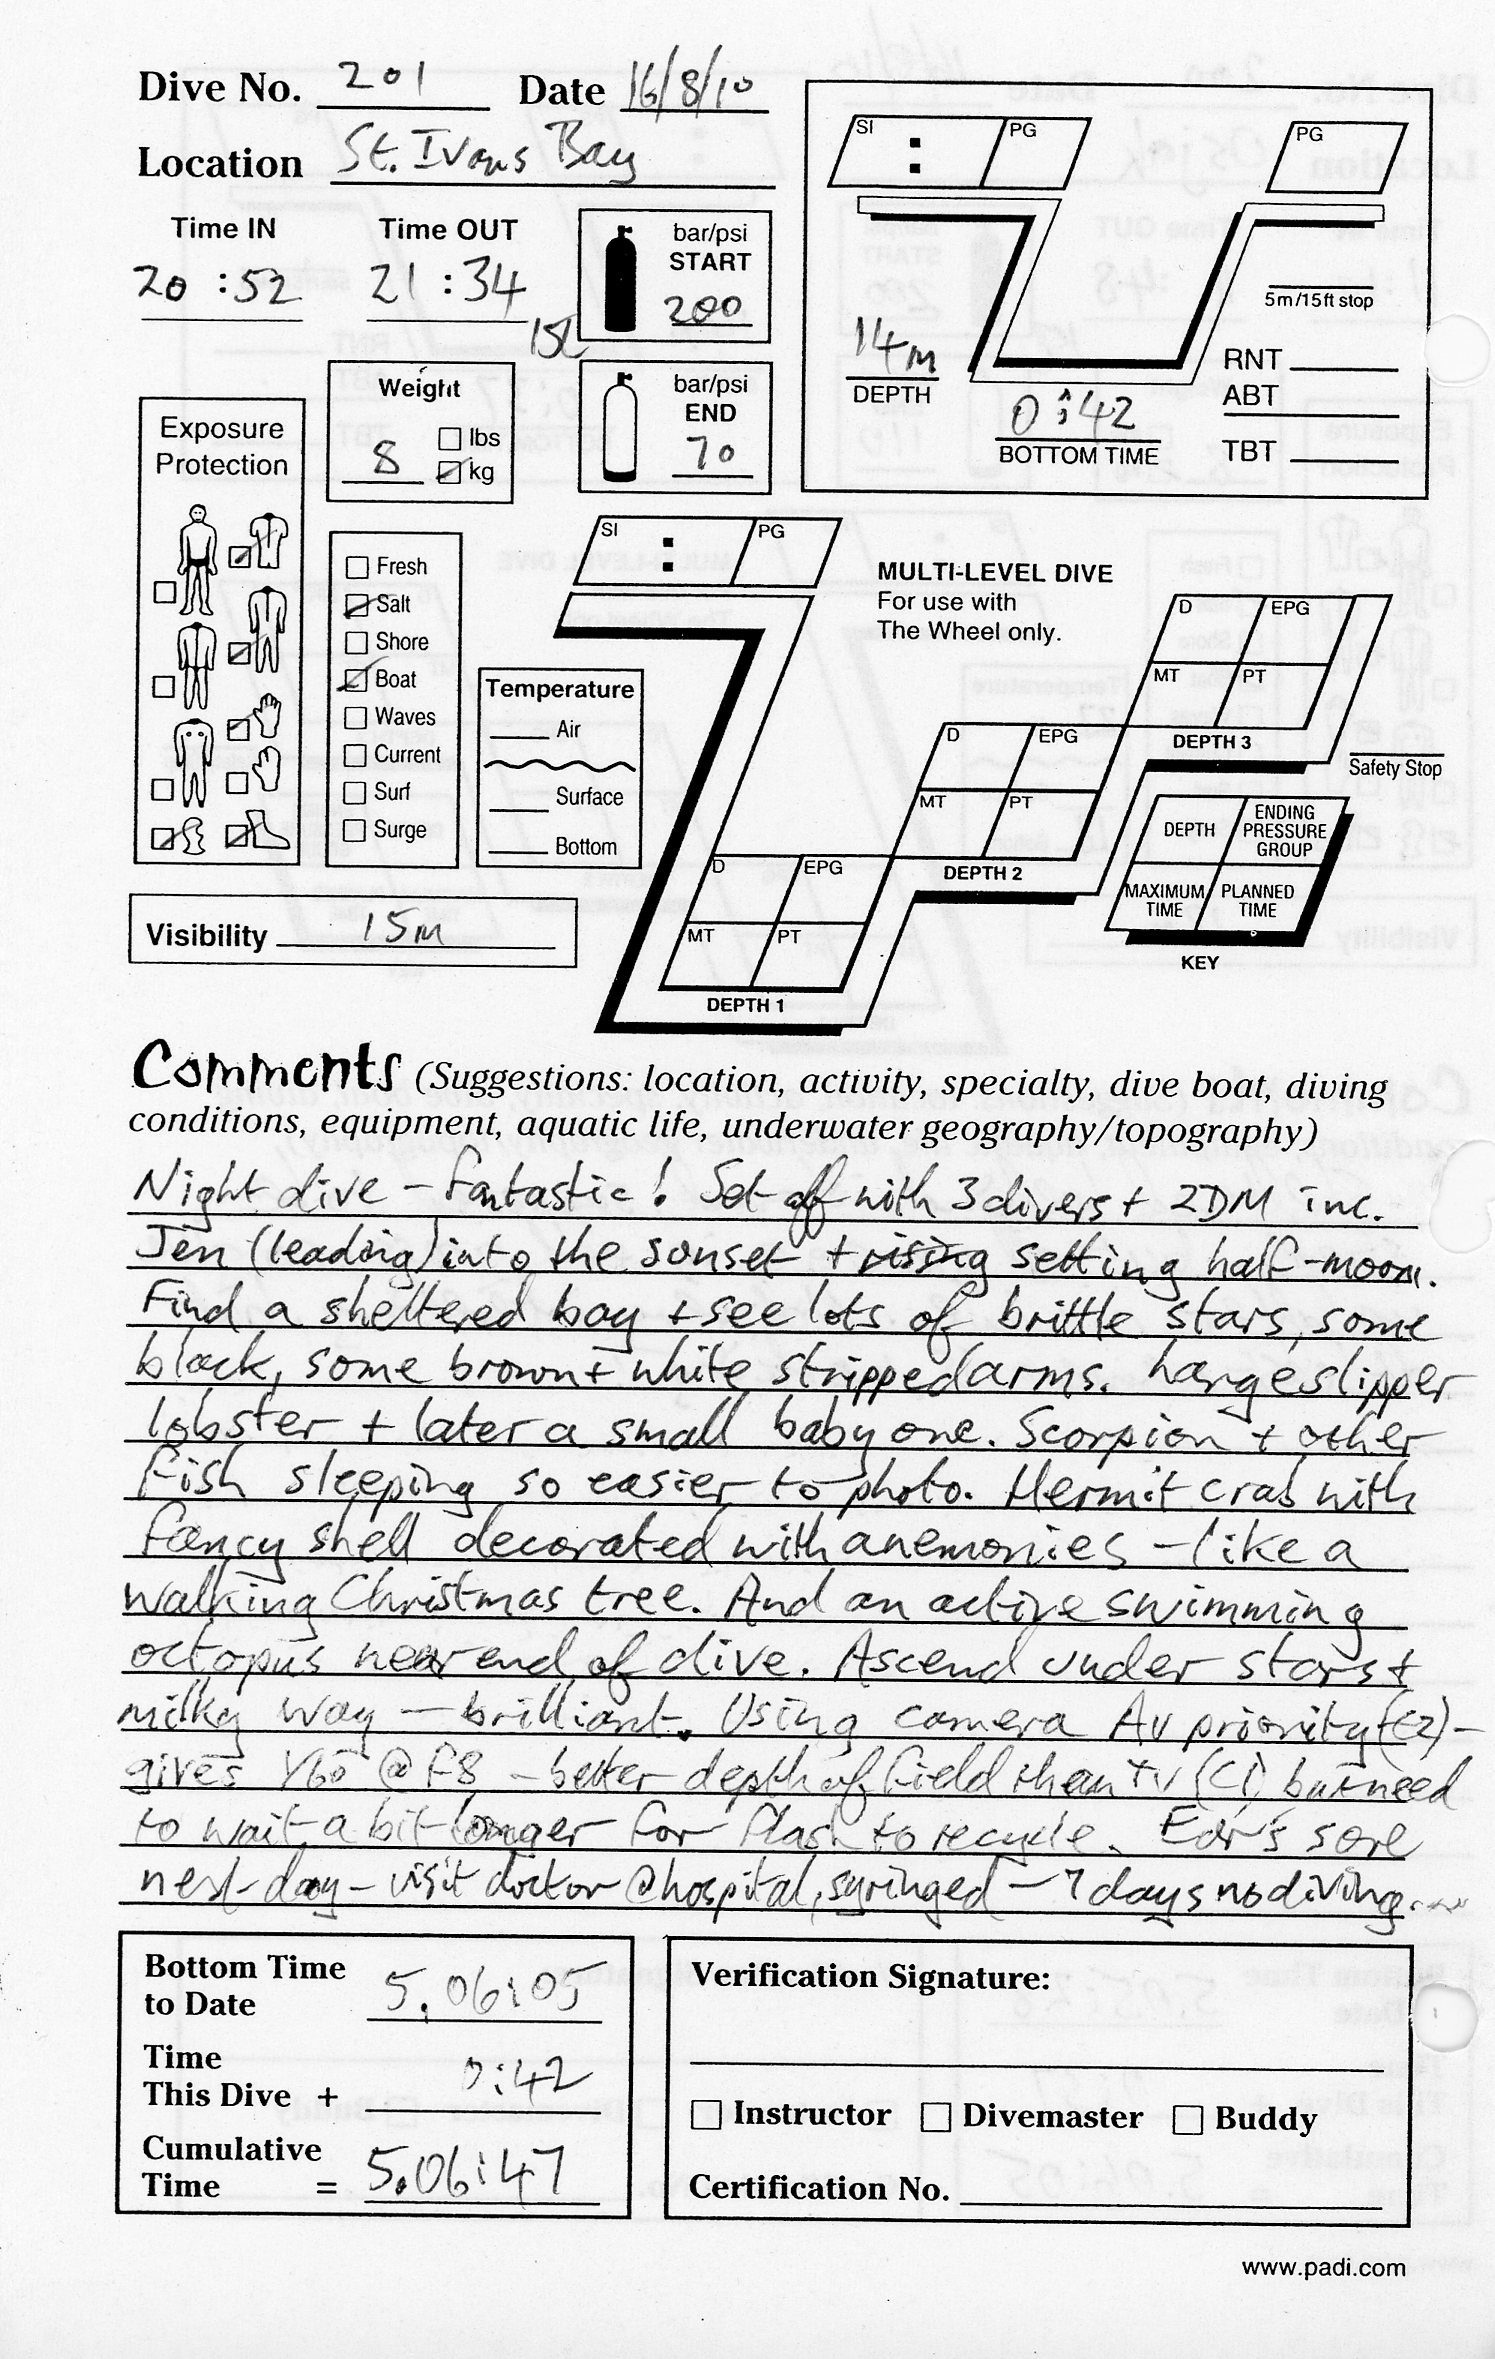 Dive No. 201 Date 16/8/10
Location St. Ivans Bay
Time IN Time OUT
20 :52 21 :34
15L
bar/psi
START
200
bar/psi
END
70
Weight
8
lbs
kg
Exposure
Protection
Fresh
Salt
Shore
Boat
Waves
Current
Surf
Surge
Temperature
Air
Surface
Bottom
Visibility 15m
SI : PG PG
5m/15ft stop
14m
DEPTH
0:42
BOTTOM TIME
RNT
ABT
TBT
SI : PG
MULTI-LEVEL DIVE
For use with
The Wheel only.
D EPG
MT PT
DEPTH 3
Safety Stop
D EPG
MT PT
DEPTH 2
D EPG
MT PT
DEPTH 1
DEPTH ENDING PRESSURE GROUP
MAXIMUM TIME PLANNED TIME
KEY
Comments (Suggestions: location, activity, specialty, dive boat, diving
conditions, equipment, aquatic life, underwater geography/topography)
Night dive - fantastic! Set off with 3 divers + 2DM inc.
Jen (leading) into the sunset + rising setting half-moon.
Find a sheltered bay + see lots of brittle stars, some
black, some brown + white stripped arms. Large slipper
lobster + later a small baby one. Scorpion + other
fish sleeping so easier to photo. Hermit crab with
fancy shell decorated with anemonies - like a
walking Christmas tree. And an active swimming
octopus near end of dive. Ascend under stars +
milky way - brilliant. Using camera Av priority (C2) -
gives 1/60 @ F8 - better depth of field than TV (C1) but need
to wait a bit longer for flash to recycle. Ear's sore
next day - visit doctor @ hospital, syringed - 7 days no diving...
Bottom Time
to Date 5.06:05
Time
This Dive + 0:42
Cumulative
Time = 5.06:47
Verification Signature:
Instructor Divemaster Buddy
Certification No.
www.padi.com